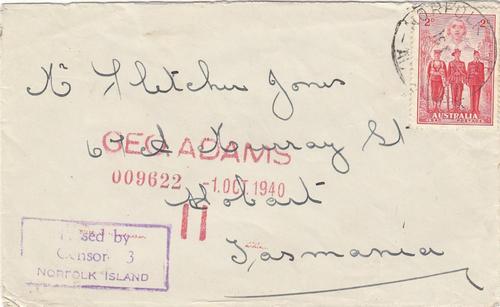 NORFOLK
2D
AUSTRALIA
Mr Fletcher Jones
GEO ADAMS
Murray St
009622 -1.OCT.1940
Hobart
11
Tasmania
Passed by
Censor 3
NORFOLK ISLAND